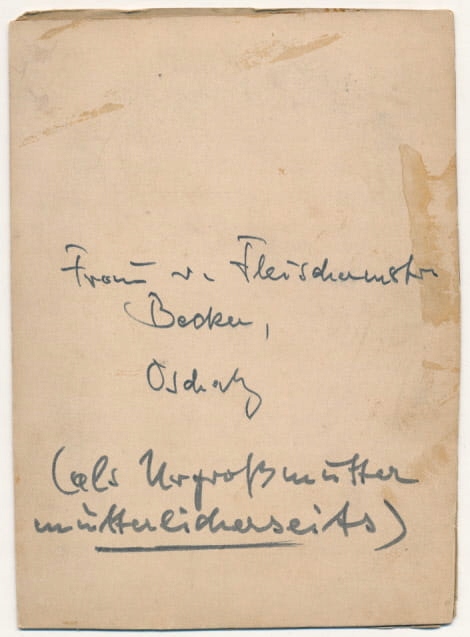 Frau v. Fleischermstr.
Becker,
Oschatz
(als Urgroßmutter
mütterlicherseits)